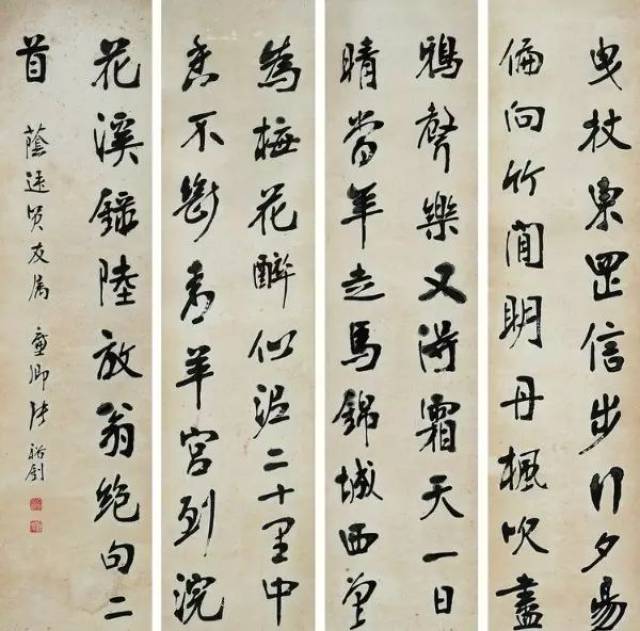 曳杖東岡信步行夕陽
偏向竹間明丹楓吹盡
鴉聲樂又得霜天一日
晴當年走馬錦城西曾
為梅花醉似泥二十里中
香不斷青羊宮到浣
花溪錄陸放翁絕句二
首
蔭賢友屬 廉卿張裕釗